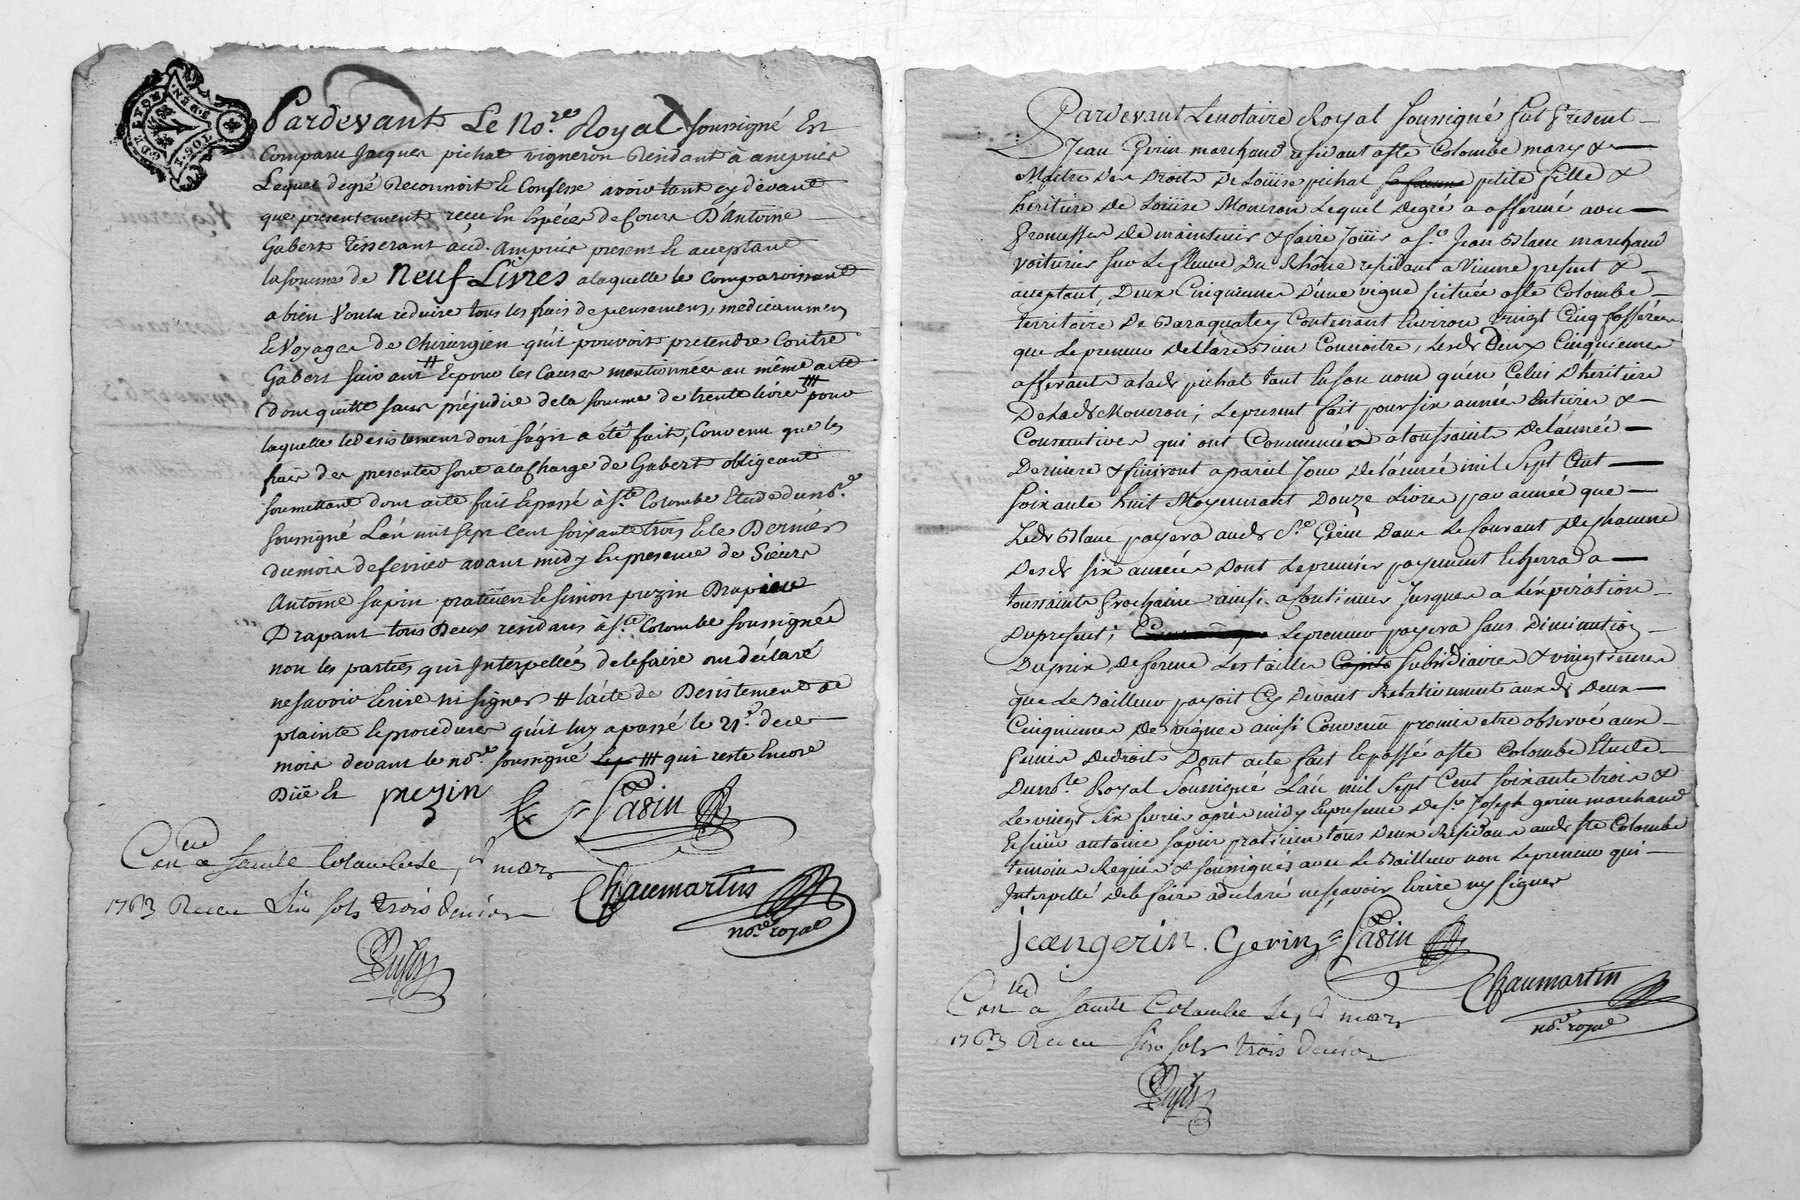 G.DE LYON
1.SOL.
8.DEN.
Pardevant Le No.re Royal soussigné Est
Comparu Jacques pichat vigneron Résidant à ampuis
Lequel degré Reconnoit et Confesse avoir tant cy devant
que presentement reçeu En Espéces de Cours D'Antoine
Gabert Tisserant aud. Ampuis present et acceptant
la somme de Neuf Livres a laquelle le Comparoissant
a bien voulu réduire tous les frais de pensemens, medicammens
et voyages de Chirurgien qu'il pouvoit pretendre Contre
Gabert suivant # et pour les Causes mentionnées au même acte
dont quitte sans préjudice de la somme de trente livres ### pour
laquelle le desistement dont s'agit a été fait, Convenu que les
frais des presentes sont a la Charge de Gabert obligeant
soumettant dont acte fait et passé à S.te Colombe Etude du no.re
soussigné L'an mil sept cent soixante trois et le Dernier
du mois de fevrier avant midy En presence de Sieurs
Antoine sapin praticien et simon prezin Drapier
Drapant tous Deux residans à S.te Colombe soussignés
non les parties qui Interpellés de le faire ont déclaré
ne savoir Ecrire ni signer # l'acte de Desistement de
plainte et procedures qu'il luy a passé le 21.e de ce
mois devant le no.re soussigné ### qui reste Encore
Düe et prezin Sapin
Con.lé a sainte Colombe le 1er mars
Chaumartin
1763 Receu Six sols trois deniers
no.re royal
Pardevant Le notaire Royal soussigné fut Present
Jean Gerin marchand residant a ste Colombe mary &
Maitre des Droits De Loüise pichat sa femme petite fille &
héritiere de Loüise Mouron Lequel degré a affermé avec
Promesse de maintenir & faire Joüir a S.r Jean Blanc marchand
voiturier sur Le fleuve Du Rhône residant a Vienne present &
acceptant, Deux Cinquiemes D'une vigne scituée a ste Colombe
territoire De Contenant Environ vingt Cinq fosserées
que Le preneur declare bien Connoitre, Lesds Deux Cinquiemes
afferants a lad. pichat tant En son nom qu'en Celuy D'héritiere
De lad. Mouron; Le present fait pour six années Entieres &
Consecutives qui ont Commencé a toussaints De l'année
Derniere & finiront a pareil Jour De l'année mil Sept Cent
soixante huit Moyennant Douze Livres par année que
Led. Blanc payera aud. S.r Gerin Dans Le Courant De chacune
Desd. six années Dont Le premier payement Echerra a
toussaints Prochaine ainsi a Continuer Jusques a L'expiration
Du present; Le preneur payera sans Diminution
Du prix De ferme Les tailles Subsidiaires & vingtiemes
que Le Bailleur payoit Cy Devant Relativement auxd. Deux
Cinquiemes De vignes ainsi Convenu promis etre observé aux
Peines De droit Dont acte fait et passé a ste Colombe Etude
Du no.re Royal Soussigné L'an mil Sept Cent soixante trois &
Le vingt six fevrier après midy En presence De S.r Joseph gerin marchand
Et sieur antoine sapin praticien tous Deux Residans aud. ste Colombe
temoins Requis & soussignés avec Le Bailleur non Le preneur qui
Interpellé de le faire a declaré ne sçavoir Ecrire ny signer
Jeangerin. Gerin Sapin
Chaumartin
Con.lé a sainte Colombe Le 1er mars
no.re royal
1763 Receu Six sols trois deniers